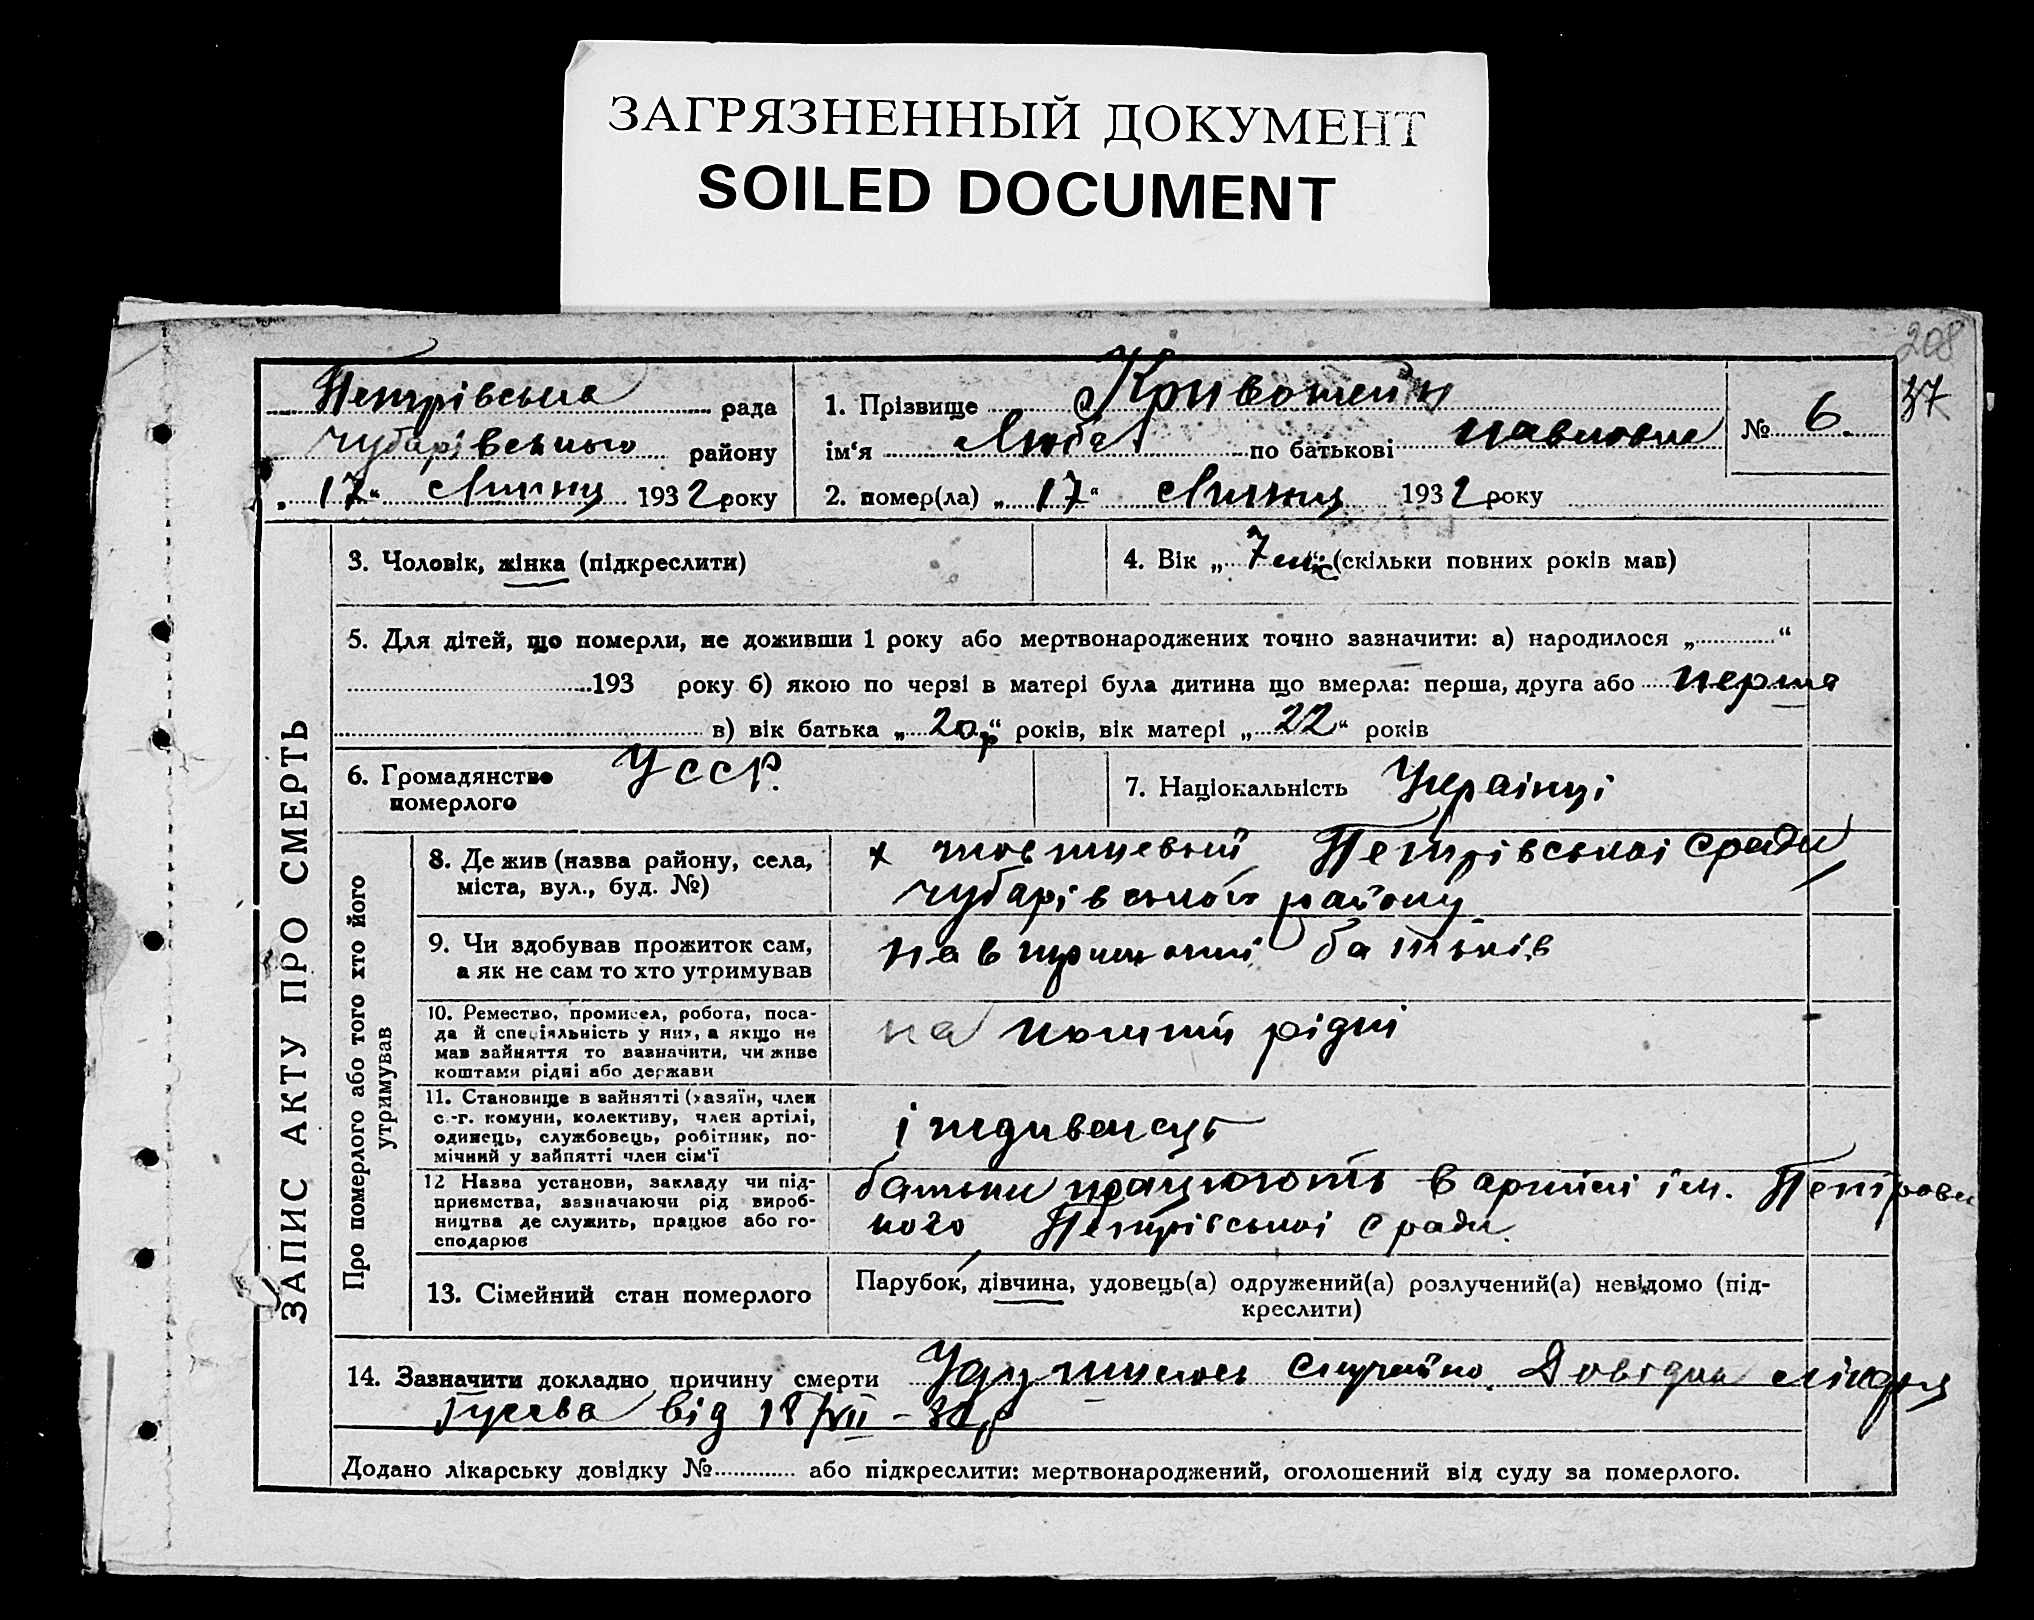 ЗАГРЯЗНЕННЫЙ ДОКУМЕНТ
SOILED DOCUMENT
208
37
Петрівська рада
Чубарівського району
„ 17 “ Липня 1932 року
1. Прізвище Кривошеїн
ім‘я Люба по батькові Павловна
№ 6.
2. помер(ла) „ 17 “ Липня 1932 року
ЗАПИС АКТУ ПРО СМЕРТЬ
3. Чоловік, жінка (підкреслити)
4. Вік „ 7 міс “ (скільки повних років мав)
5. Для дітей, що померли, не доживши 1 року або мертвонароджених точно зазначити: а) народилося „ “
193 року б) якою по черзі в матері була дитина що вмерла: перша, друга або перша
в) вік батька „ 20 р “ років, вік матері „ 22 “ років
6. Громадянство померлого УССР.
7. Національність Українці
Про померлого або того хто його утримував
8. Де жив (назва району, села,
міста, вул., буд. №)
х Петрівської сради
Чубарівського району
9. Чи здобував прожиток сам,
а як не сам то хто утримував
на батьків
10. Ремество, промисел, робота, поса-
да й спеціяльність у них, а якщо не
мав зайняття то зазначити, чи живе
коштами рідні або держави
на рідні
11. Становище в зайнятті (хазяїн, член
с.-г. комуни, колективу, член артілі,
одинець, службовець, робітник, по-
мічний у зайнятті член сім‘ї
12 Назва установи, закладу чи під-
приємства, зазначаючи рід вироб-
ництва де служить, працює або го-
сподарює
батьки працюють в артілі ім. Петровсь
кого Петрівської сради.
13. Сімейний стан померлого
Парубок, дівчина, удовець(а) одружений(а) розлучений(а) невідомо (під-
креслити)
14. Зазначити докладно причину смерти случайно. Довідка лікаря
Гусєва від 18/VII – 32 р
Додано лікарську довідку № або підкреслити: мертвонароджений, оголошений від суду за померлого.